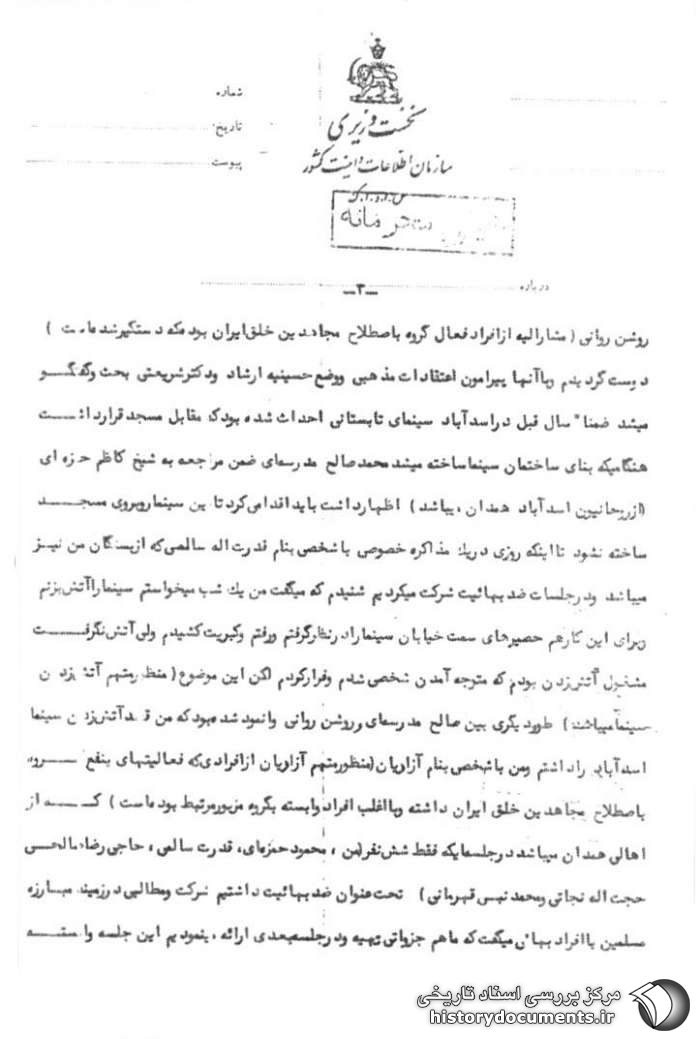 شماره
تاریخ
پیوست
نخست وزیری
سازمان اطلاعات و امنیت کشور
س.ا.و.ا.ک
محرمانه
درباره
ـ۳ـ
روشن روانی ( مشارالیه از افراد فعال گروه باصطلاح مجاهدین خلق ایران بوده که دستگیر شده است )
دوست گردیدم وبا آنها پیرامون اعتقادات مذهبی ووضع حسینیه ارشاد ودکتر شریعتی بحث وگفتگو
میشد ضمنا" سال قبل در اسدآباد سینمای تابستانی احداث شده بود که مقابل مسجد قرار داشت
هنگامیکه بنای ساختمان سینما ساخته میشد محمد صالح مدرسه‌ای ضمن مراجعه به شیخ کاظم حمزه ای
(از روحانیون اسدآباد همدان میباشد ) اظهار داشت باید اقدامی کرد تا این سینما روبروی مسجد
ساخته نشود تا اینکه روزی در یك مذاکره خصوصی با شخصی بنام قدرت اله سالمی که از بستگان من نیز
میباشد ودر جلسات ضد بهائیت شرکت میکردیم شنیدم که میگفت من یك شب میخواستم سینما را آتش بزنم
وبرای این کار هم حصیرهای سمت خیابان سینما را در نظر گرفتم ورفتم وکبریت کشیدم ولی آتش نگرفت
مشغول آتش زدن بودم که متوجه آمدن شخصی شدم وفرار کردم لکن این موضوع ( منظور متهم آتش زدن
سینما میباشد ) طور دیگری بین صالح مدرسه‌ای وروشن روانی وانمود شده بود که من قصد آتش زدن سینما
اسدآباد را داشتم ومن با شخصی بنام آزادیان (منظور متهم آزادیان از افرادی که فعالیتهای بنفع گروه
باصطلاح مجاهدین خلق ایران داشته وبا اغلب افراد وابسته بگروه مزبور مرتبط بوده است ) که از
اهالی همدان میباشد در جلسه‌ایکه فقط شش نفر (من ، محمود حمزه‌ای، قدرت سالمی ، حاجی رضا صالحی
حجت اله نجاتی ومحمد قهرمانی ) تحت عنوان ضد بهائیت داشتیم شرکت ومطالبی در زمینه مبارزه
مسلمین با افراد بهائی میگفت که ما هم جزواتی تهیه ودر جلسه بعدی ارائه میشودیم این جلسه وابسته
مرکز بررسی اسناد تاریخی
historydocuments.ir